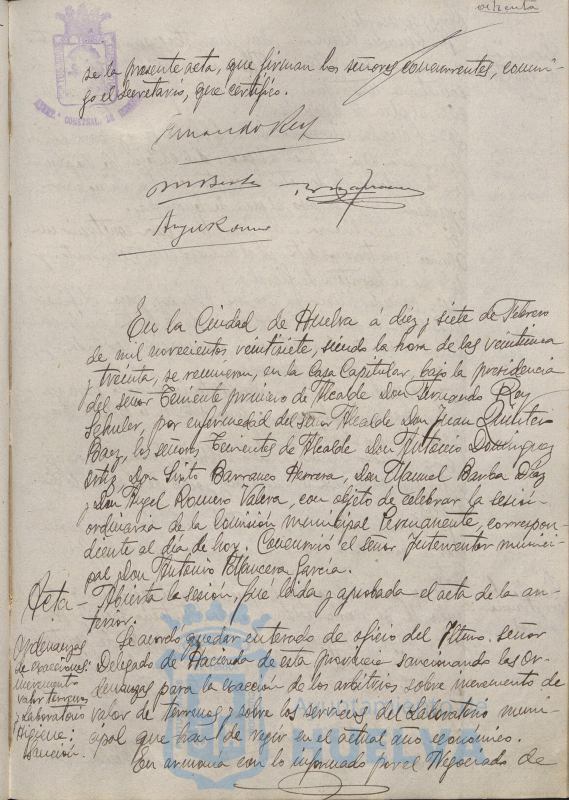 ochenta
se la presente acta, que firman los señores concurrentes, conmi-
go el Secretario, que certifico.
Fernando Rey
M. Barba
Angel Romero
En la Ciudad de Huelva á diez y siete de Febrero
de mil novecientos veintisiete, siendo la hora de las veintiuna
y treinta, se reunieron, en la Casa Capitular, bajo la presidencia
del señor Teniente primero de Alcalde Don Fernando Rey
Schuler, por enfermedad del señor Alcalde Don Juan Quintero
Baez, los señores Tenientes de Alcalde Don Antonio Dominguez
Ortiz Don Sixto Barranco Herrera, Don Manuel Barba Diaz
y Don Angel Romero Valera, con objeto de celebrar la sesión
ordinaria de la Comisión municipal Permanente, correspon-
diente al día de hoy. Concurrió el señor Interventor munici-
pal, Don Antonio García.
Acta- Abierta la sesión, fué leida y aprobada el acta de la an-
terior.
Ordenanzas
de exacciones:
incremento
valor terrenos
y Laboratorio
Higiene:
sanción.
Se acordó quedar enterado de oficio del Iltmo. señor
Delegado de Hacienda de esta provincia sancionando las Or-
denanzas para la exacción de los arbitrios sobre incremento de
valor de terrenos y sobre los servicios del Laboratorio muni-
cipal que han de regir en el actual año económico.
En armonia con lo informado por el Negociado de
Ayuntamiento de
HUELVA